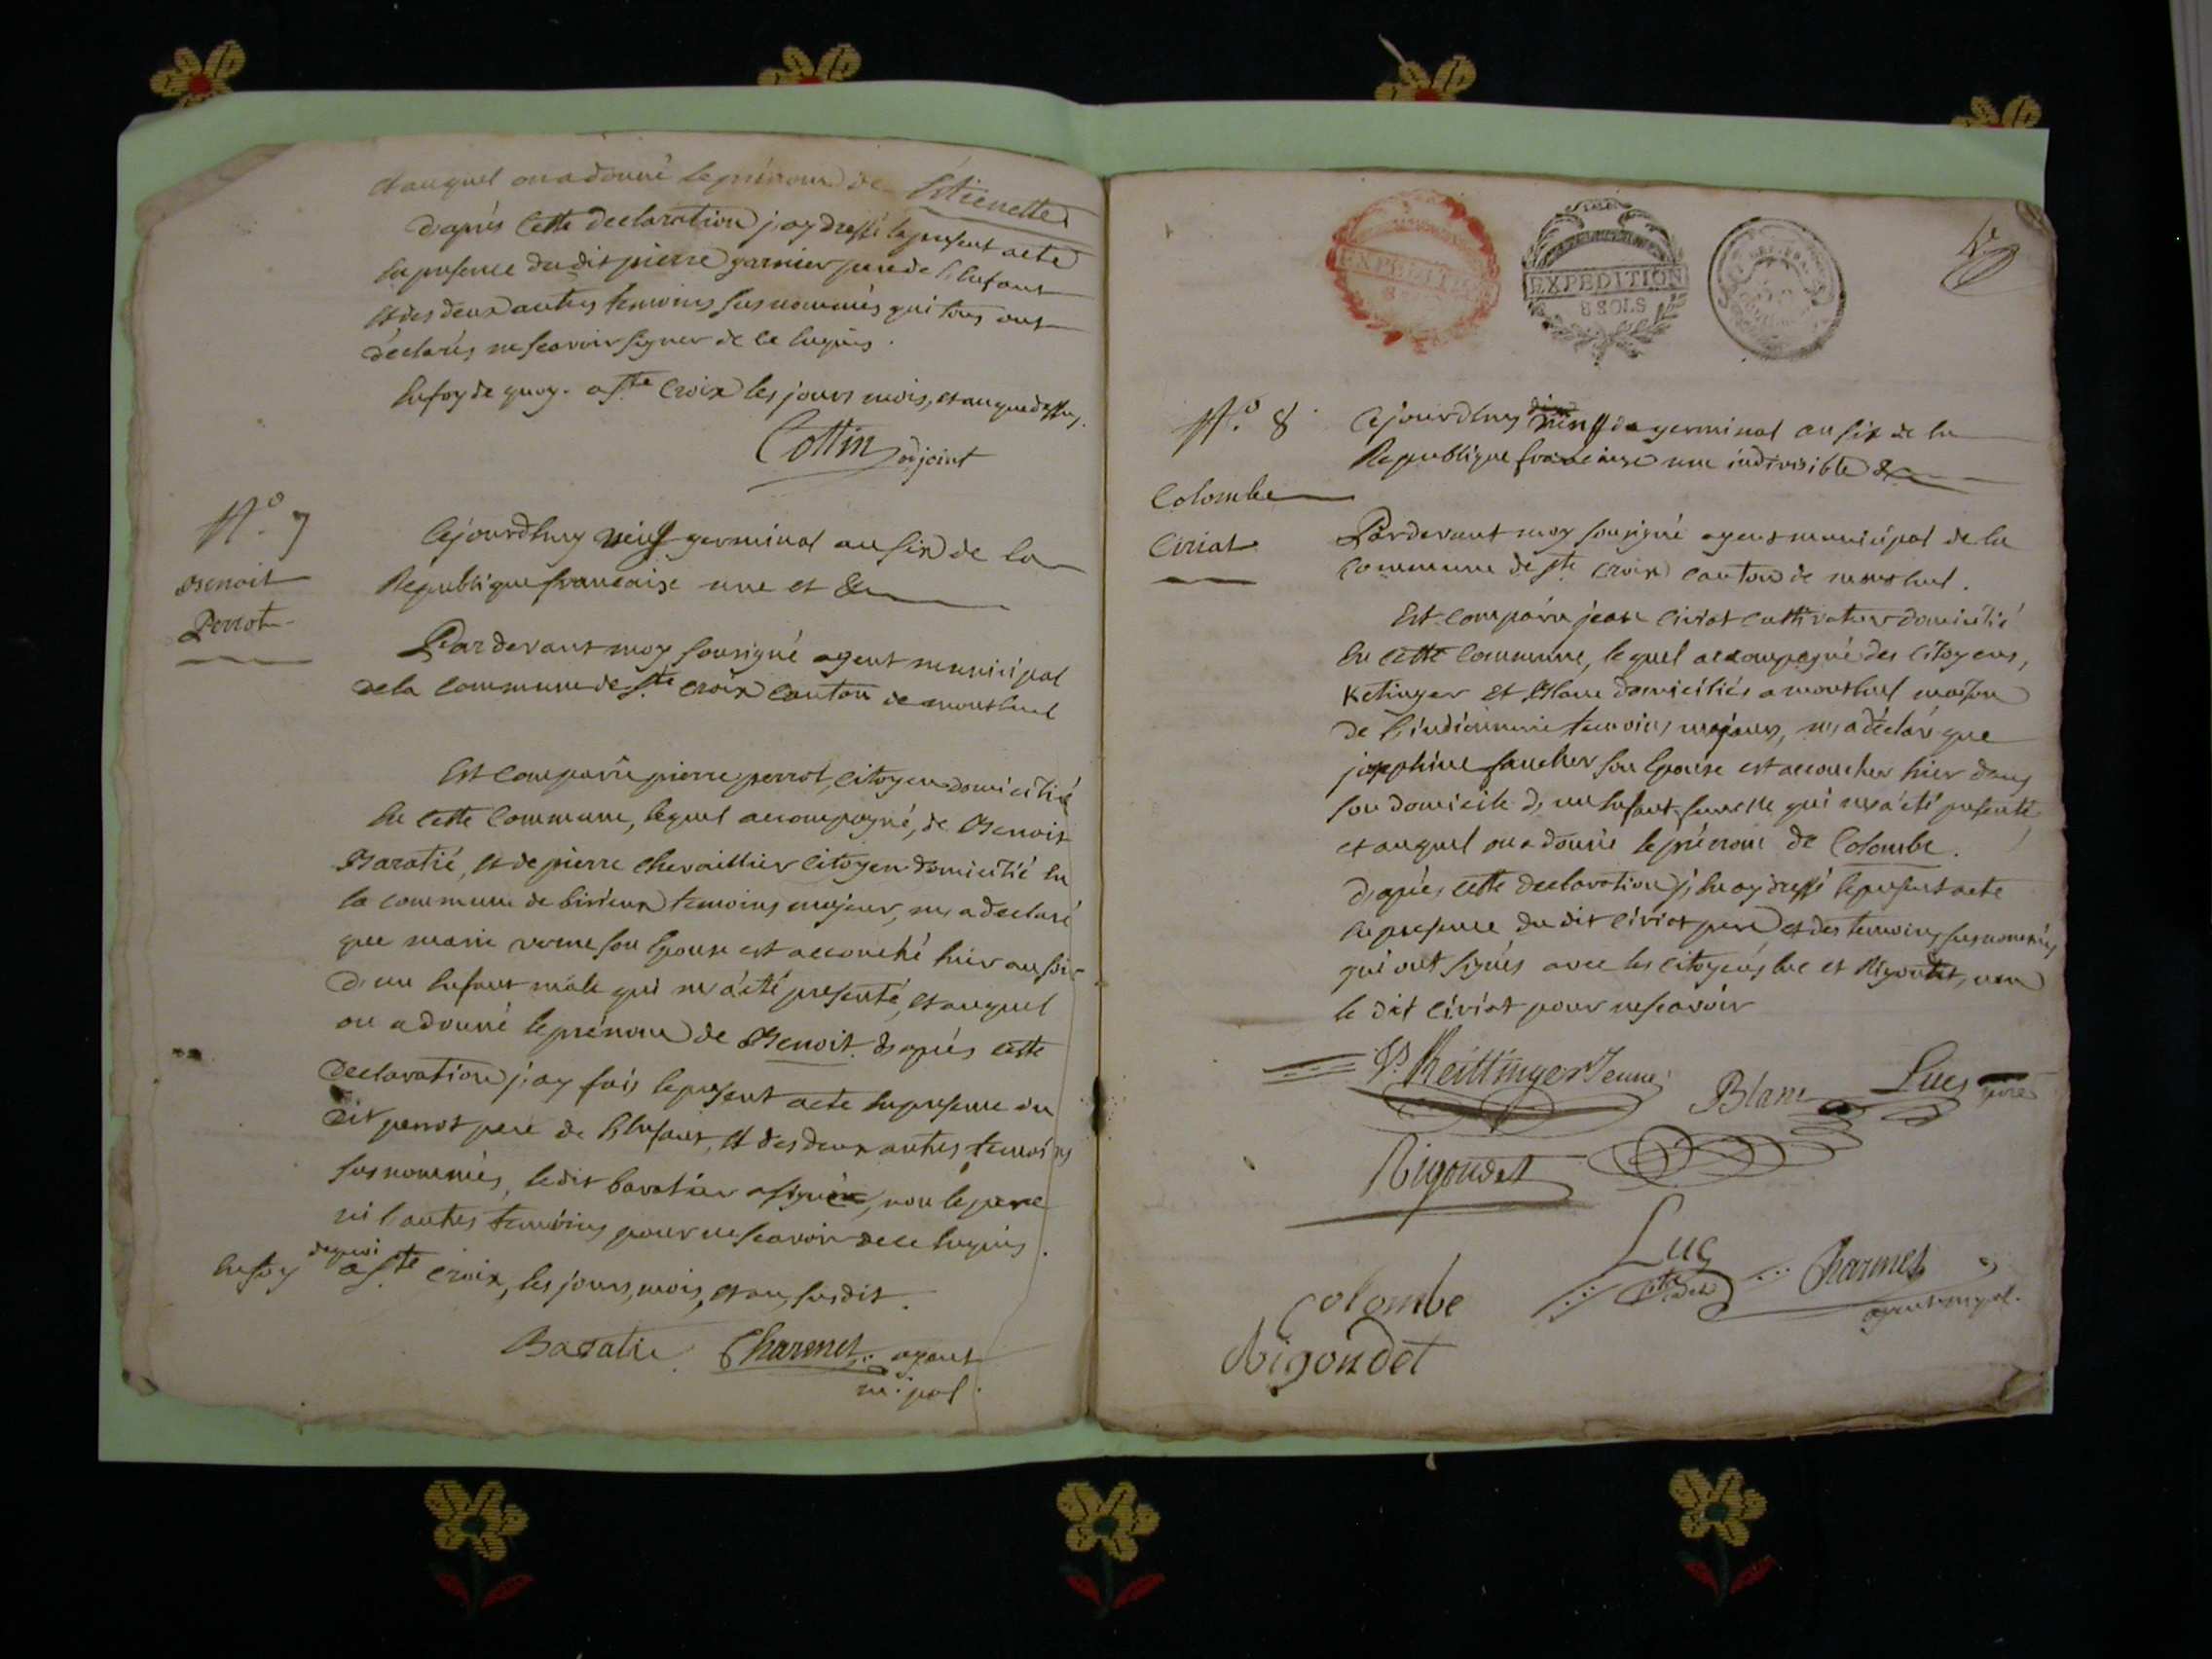 et auquel on a donné le prénom de Etienette
d'après cette declaration j'ay dressé le present acte
En presence du dit pierre garnier pere de l'enfant
et des deux autres temoins susnommés qui tous ont
déclarés ne scavoir signer de ce enquis.
En foy de quoy. a Ste Croix les jours mois, et an que dessus.
Cottin adjoint
N.o 7
Benoit
Perrot
Cejourdhuy neuf germinal an six de la
Republique francaise une et &
Pardevant moy sousigné agent municipal
de la commune de Ste croix canton de montluel
Est comparu pierre perrot, citoyen domicilié
En cette commune, lequel accompagné, de Benoit
Baratié, et de pierre chevaillier citoyen domicilié En
la commune de birieux temoins majeur, m'a declaré
que marie verne son Epouse est accouché hier au soir
d'un Enfant mâle qui m'a été presenté, et auquel
on a donné le prénom de Benoit. d'après cette
declaration j'ay fais le present acte En presence du
dit perrot pere de l'Enfant, et des deux autres temoins
susnommés, le dit baratier a signé, non le pere
ni l'autres temoins pour ne scavoir de ce Enquis.
En foy de quoi a Ste croix, les jours, mois, et an, susdit.
Baratie Charmet agent
m.pal.
EXPEDITION
8 SOLS
EXPEDITION
8 SOLS
N.o 8
Colombe
Ciriat
Cejourdhuy de germinal an six de la
Republique francaise une indivisible &
Pardevant moy sousigné agent municipal de la
commune de Ste croix canton de montluel.
Est comparu jean Ciriat cultivateur domicilié
En cette commune, lequel accompagné des citoyens,
Ketinger et Blanc domiciliés a montluel maison
de l'indiennerie temoins majeurs, m'a déclaré que
josephine faucher son Epouse est accoucher hier dans
son domicile d'un Enfant femelle qui m'a été presenté
et auquel on a donné le prénom de Colombe.
d'après cette declaration j'En ay dressé le present acte
En presence du dit Ciriat pere et des temoins susnommés
qui ont signés avec les citoyens luc et Rigondet, non
le dit Ciriat pour ne scavoir
Keittinger Jeune Blanc Luc pere
Rigondet
Luc
cadet
Charmet
agent mpal.
Colombe
Rigondet